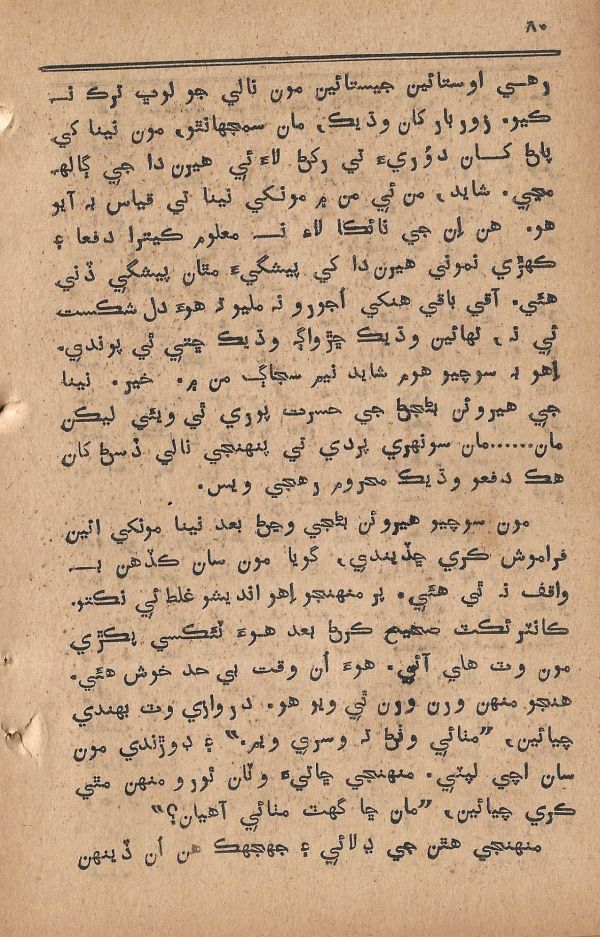 ۸۰
رهسي اوستائين جيستائين مون نالي جو لوپ ترڪ نہ
ڪيو. زور بار کان وڌيڪ، مان سمجهانٿو، مون نينا کي
پاڻ کان دؤريءَ تي رکڻ لاءِ ئي هيرن دا جي ڳالهہ
مڃي. شايد، من ئي من ۾ مونکي نينا تي قياس بہ آيو
هو. هن اِن جي ناٽڪا لاءِ نہ معلوم ڪيترا دفعا ۽
ڪهڙي نموني هيرن دا کي پيشگيءَ مٿان پيشگي ڏني
هئي. آقي باقي هنکي اُجورو نہ مليو تہ هوءَ دل شڪست
ٿي تہ، تهائين وڌيڪ ڇڙواڳ وڌيڪ ڇتي ٿي پوندي.
اِهو بہ سوچيو هوم شايد نيم سجاڳ من ۾. خير. نينا
جي هيروئن بڻجڻ جي حسرت پوري ٿي ويئي ليڪن
مان......مان سونهري پردي تي پنهنجي نالي ڏسڻ کان
هڪ دفعو وڌيڪ محروم رهجي ويس.
مون سوچيو هيروئن بڻجي وڃڻ بعد نينا مونکي ائين
فراموش ڪري ڇڏيندي، گويا مون سان ڪڏهن بہ
واقف نہ ٿي هئي. پر منهنجو اِهو انديشو غلط ئي نڪتو.
ڪانٽرئڪٽ صحيح ڪرڻ بعد هوءَ ٽئڪسي پڪڙي
مون وٽ هلي آئي. هوءَ اُن وقت بي حد خوش هئي.
هنجو منهن ورن ورن ٿي ويو هو. دروازي وٽ بهندي
چيائين، ”مٺائي وٺڻ تہ وسري ويم.“ ۽ ڊوڙندي مون
سان اچي لپٽي. منهنجي ڇاتيءَ وٽان ٿورو منهن مٿي
ڪري چيائين، ”مان ڇا گهٽ مٺائي آهيان؟“
منهنجي هٿن جي ڍلائي ۽ جهجهڪ هن اُن ڏينهن